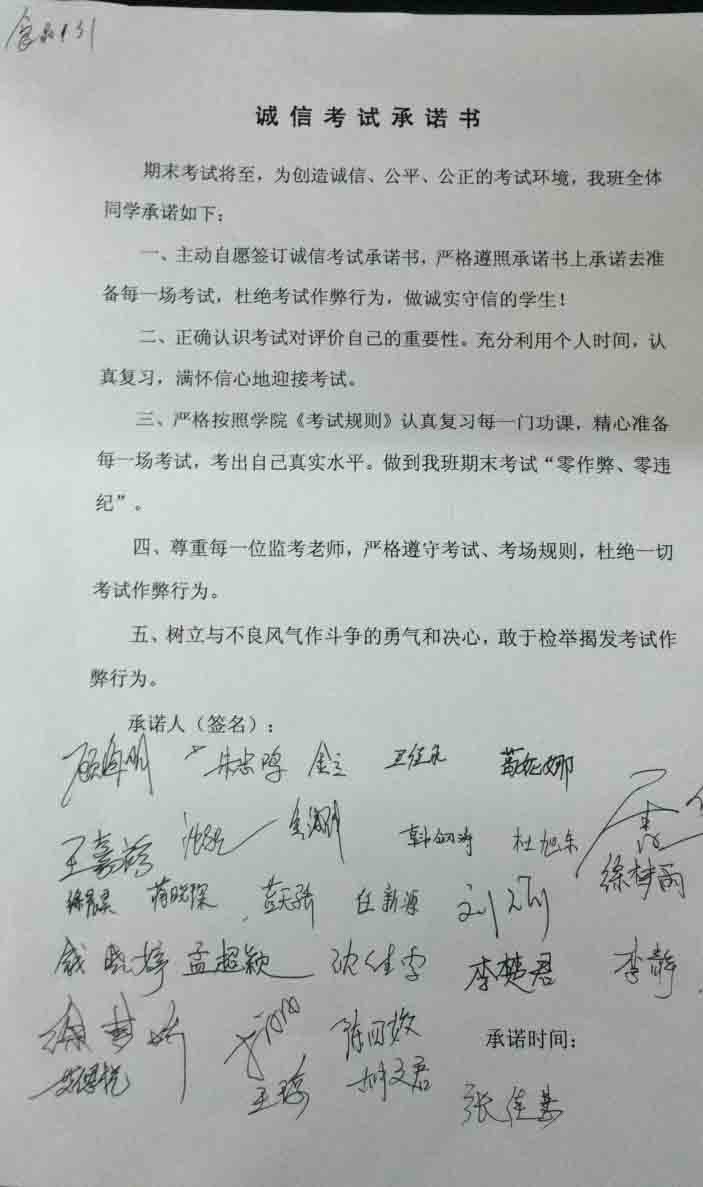 诚信考试承诺书
期末考试将至，为创造诚信、公平、公正的考试环境，我班全体
同学承诺如下：
一、主动自愿签订诚信考试承诺书，严格遵照承诺书上承诺去准
备每一场考试，杜绝考试作弊行为，做诚实守信的学生！
二、正确认识考试对评价自己的重要性。充分利用个人时间，认
真复习，满怀信心地迎接考试。
三、严格按照学院《考试规则》认真复习每一门功课，精心准备
每一场考试，考出自己真实水平。做到我班期末考试“零作弊、零违
纪”。
四、尊重每一位监考老师，严格遵守考试、考场规则，杜绝一切
考试作弊行为。
五、树立与不良风气作斗争的勇气和决心，敢于检举揭发考试作
弊行为。
承诺人（签名）：
朱忠鸣 金立 卫佳永 葛妮娜
王嘉蒋 韩钢涛 杜旭东
徐梦雨
蒋晓琛 任新源
钱晓婷 孟超颖 沈佳宇 李楚君 李静
徐梦娇 承诺时间：
王瑶 胡文君 张佳慧